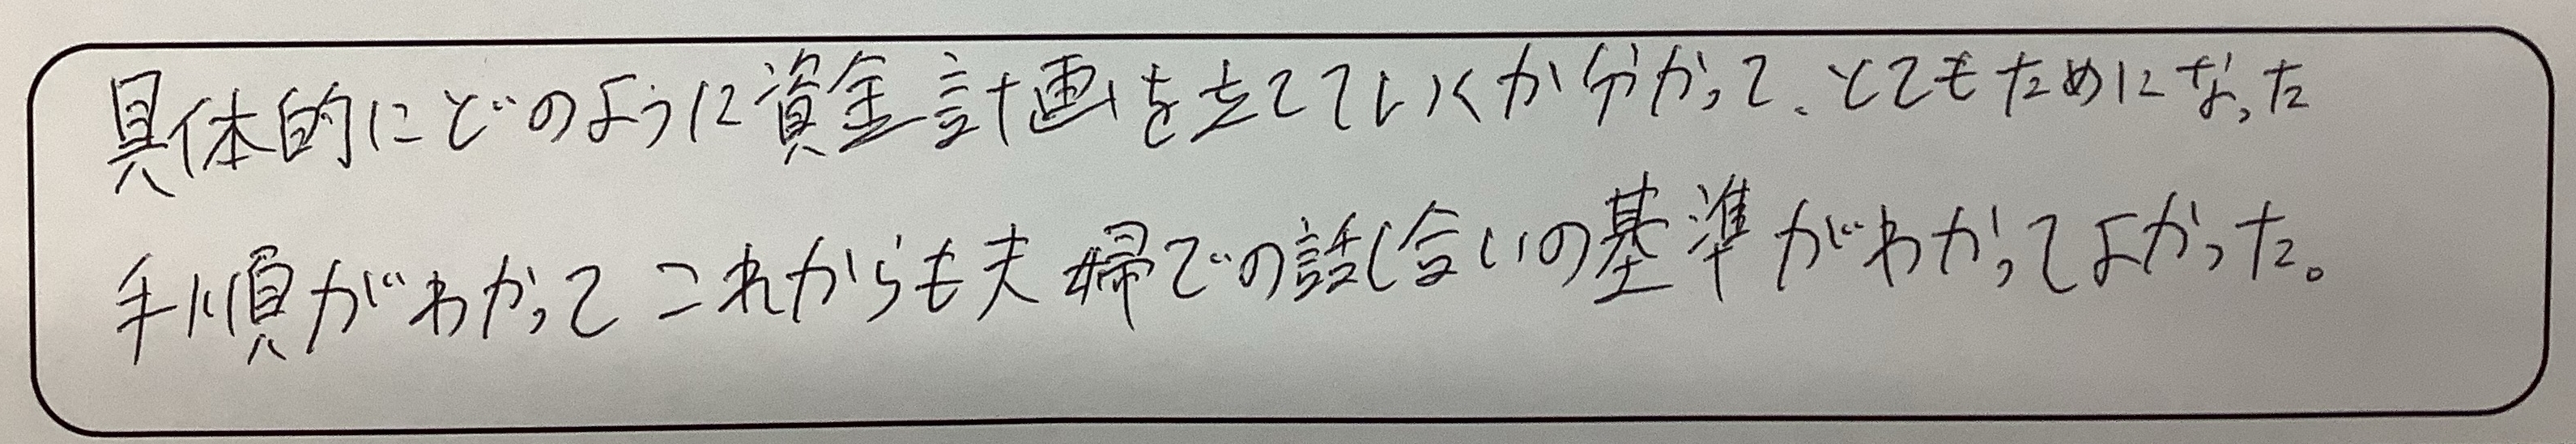 具体的にどのように資金計画を立てていくか分かって、とてもためになった
手順がわかってこれからも夫婦での話し合いの基準がわかってよかった。